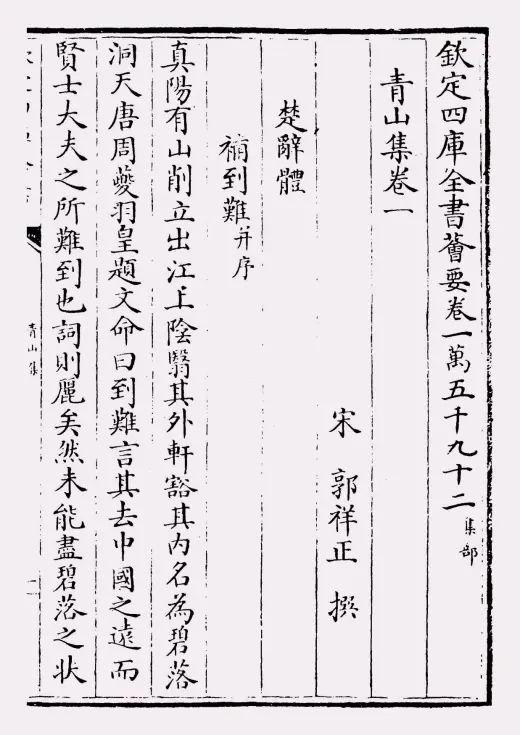 欽定四庫全書薈要卷一萬五千九十二 集部
青山集卷一
宋 郭祥正 撰
楚辭體
補到難并序
真陽有山削立出江上陰翳其外軒豁其内名為碧落
洞天唐周夔羽皇題文命曰到難言其去中國之遠而
賢士大夫之所難到也詞則麗矣然未能盡碧落之狀
青山集
一